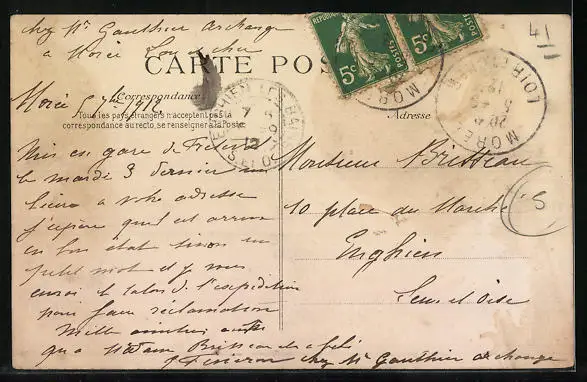 chez Mr Gauthier archange
a Morée Loir et cher
CARTE POS
Correspondance
Tous les pays étrangers n'acceptent pas la
correspondance au recto, se renseigner à la Poste
Adresse
Morée 5 1912
Mis en gare de
le mardi 3 dernier un
a votre adresse
j'espère quil est arrivé
en bon état sinon un
petit mot et je vous
envoi le talon de l'expédition
pour faire réclamation
Mille amitiés
qu'a Madame Britteau
chez Mr Gauthier archange
Monsieur Britteau
10 place du Marché
Enghien
Seine et Oise
REPUBLIQUE
POSTES
5c
5c
MORÉE
LOIR-ET-CHER
ENGHIEN LES BAINS
S. ET O.
7
12
41
S